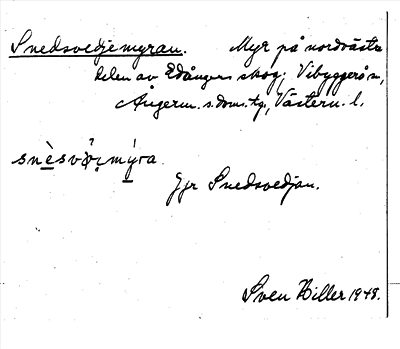 Snedsvedjemyran. Myr på nordvästra
delen av Edångers skog, Vibyggerå sn,
Ångerm. s. doms. tg., Västern. l.
snèsvö̀ι mýra
Jfr Snedsvedjan.
Sven Hiller 1948.